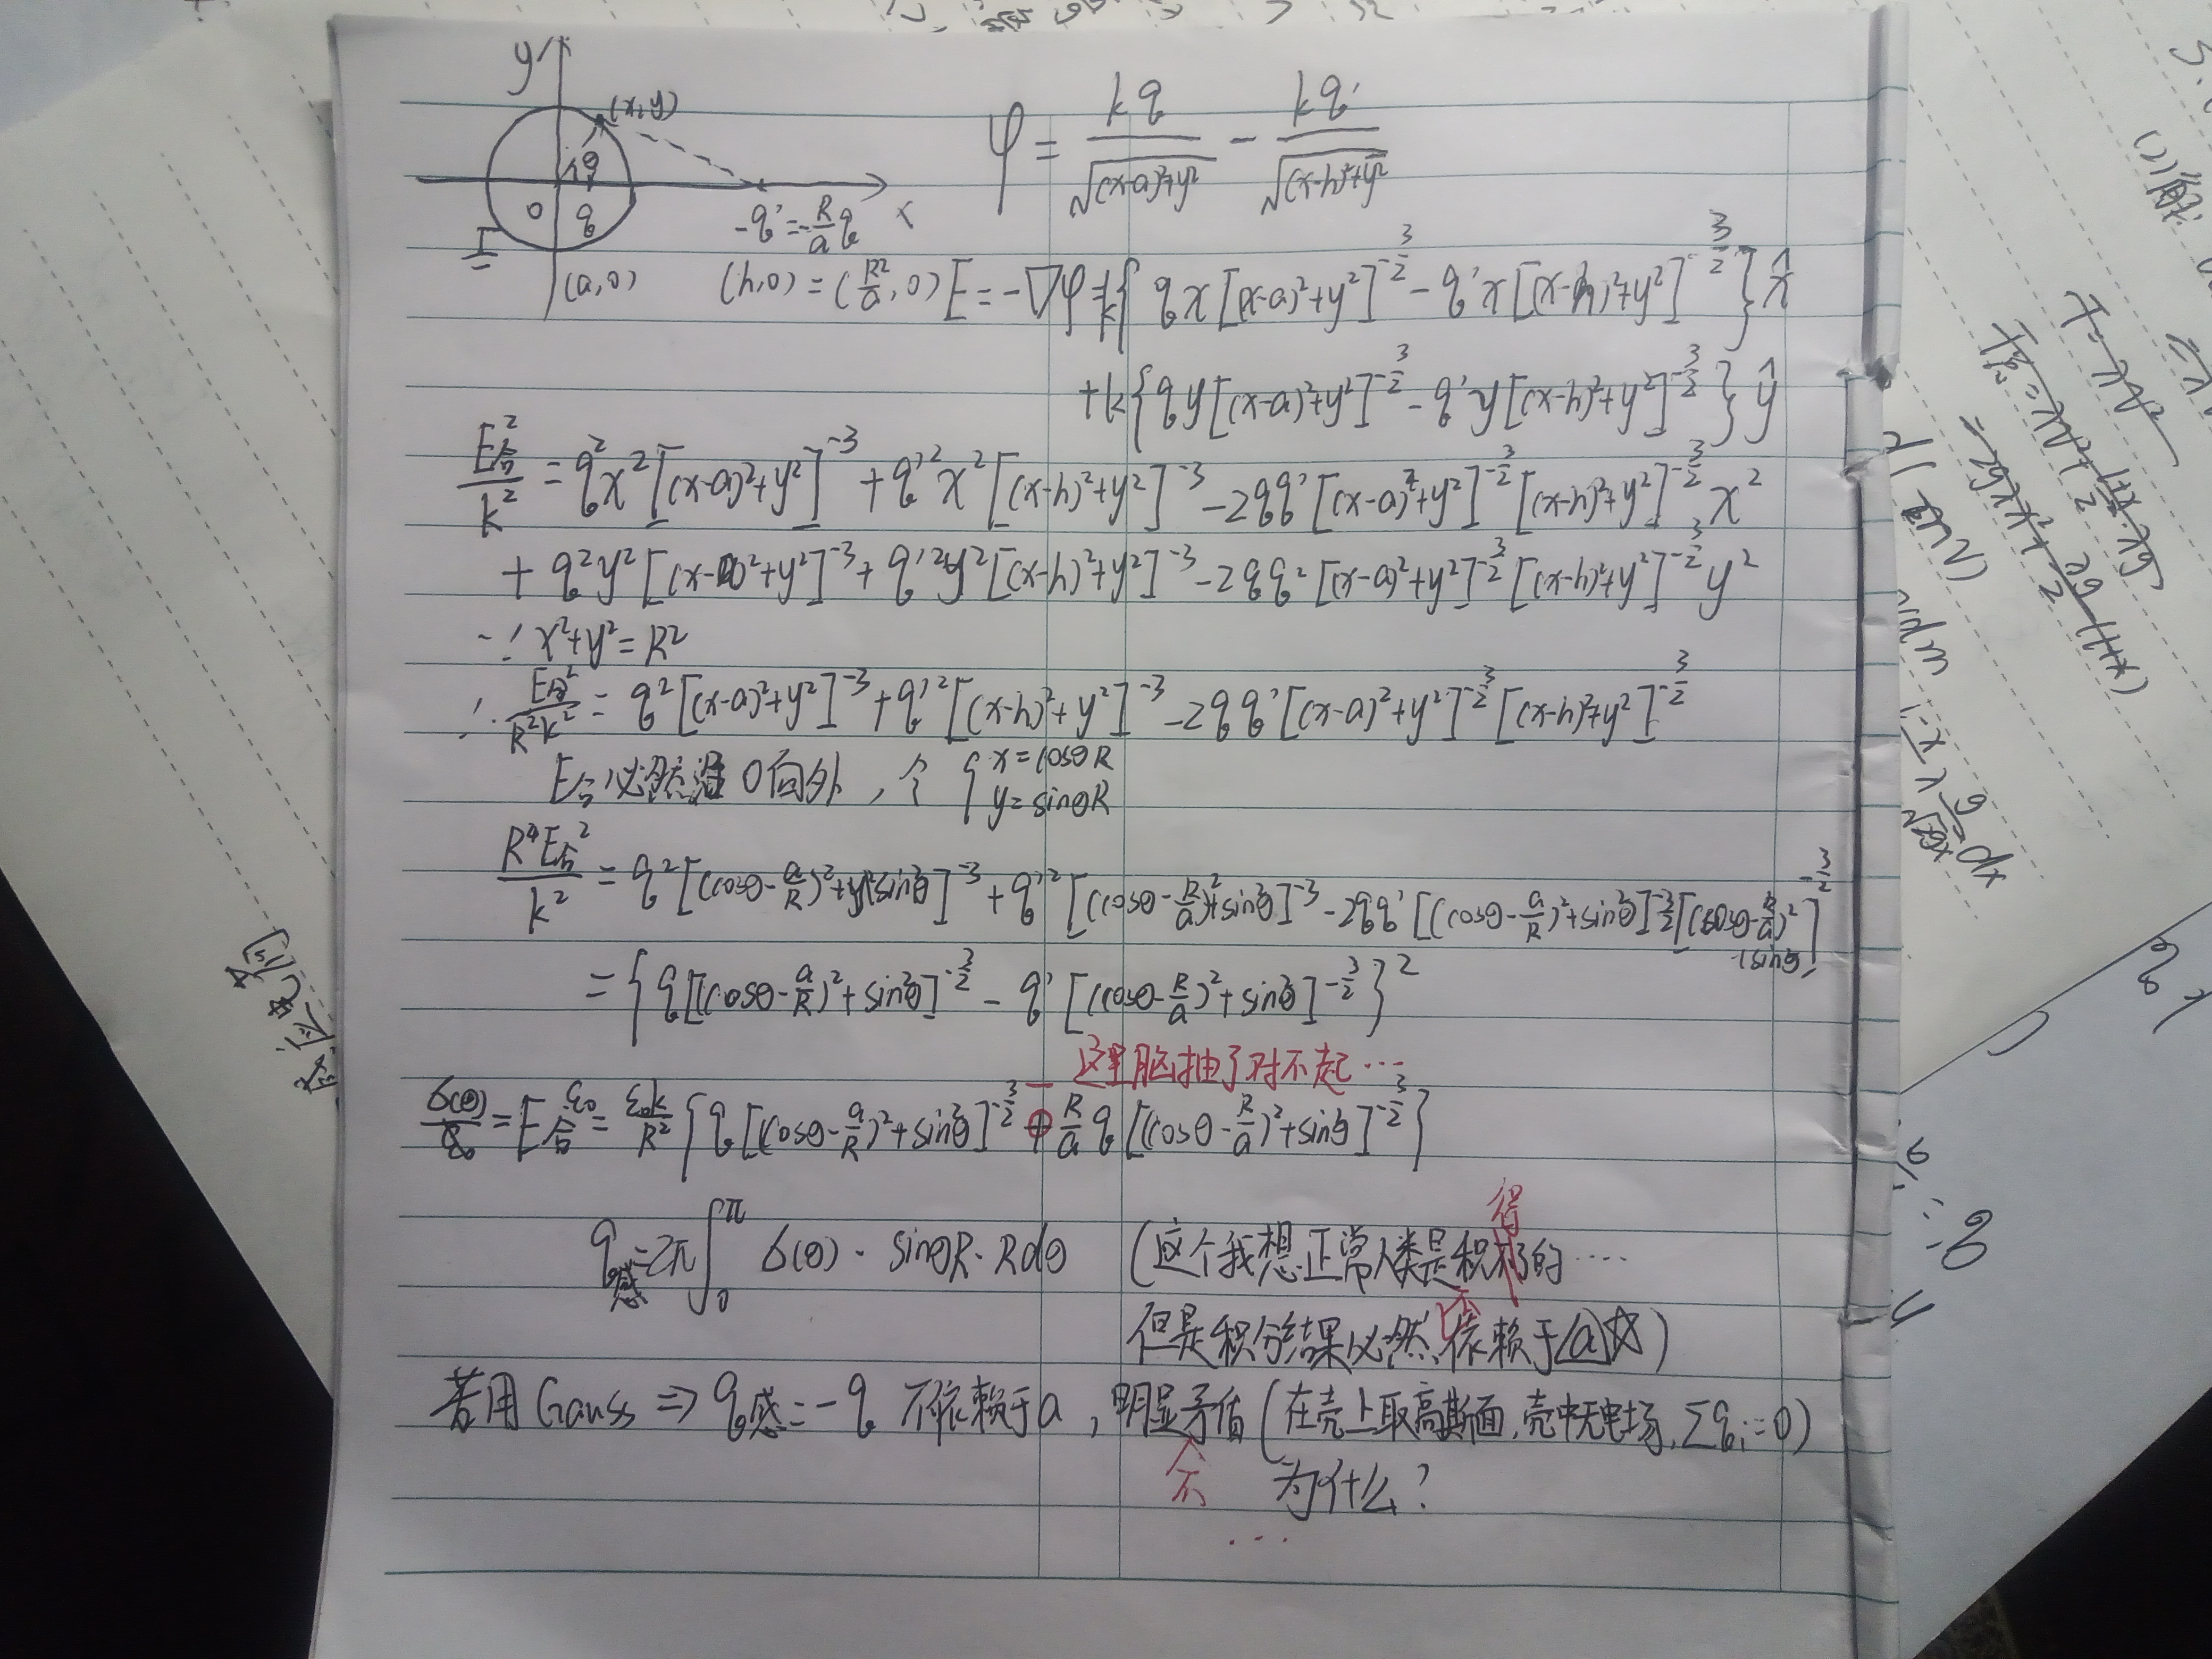 y
(x,y)
θ
O
q
x
-q'=-R/a q
(a,0)
(h,0)=(R²/a,0)
φ = kq/√((x-a)²+y²) - kq'/√((x-h)²+y²)
E=-∇φ=k{qx[(x-a)²+y²]^(-3/2)-q'x[(x-h)²+y²]^(-3/2)}x̂
+k{qy[(x-a)²+y²]^(-3/2)-q'y[(x-h)²+y²]^(-3/2)}ŷ
E合²/k² = q²x²[(x-a)²+y²]^(-3)+q'²x²[(x-h)²+y²]^(-3)-2qq'[(x-a)²+y²]^(-3/2)[(x-h)²+y²]^(-3/2)x²
+q²y²[(x-a)²+y²]^(-3)+q'²y²[(x-h)²+y²]^(-3)-2qq²[(x-a)²+y²]^(-3/2)[(x-h)²+y²]^(-3/2)y²
∵x²+y²=R²
∴E合²/R²k² = q²[(x-a)²+y²]^(-3)+q'²[(x-h)²+y²]^(-3)-2qq'[(x-a)²+y²]^(-3/2)[(x-h)²+y²]^(-3/2)
E合必然沿O向外,令{x=cosθR
y=sinθR
R⁴E合²/k² = q²[(cosθ-a/R)²+sin²θ]^(-3)+q'²[(cosθ-R/a)²+sin²θ]^(-3)-2qq'[(cosθ-a/R)²+sin²θ]^(-3/2)[(cosθ-R/a)²+sin²θ]^(-3/2)
={q[(cosθ-a/R)²+sin²θ]^(-3/2)-q'[(cosθ-R/a)²+sin²θ]^(-3/2)}²
这里脑抽了对不起…
σ(θ)=E合ε₀=ε₀k/R²{q[(cosθ-a/R)²+sin²θ]^(-3/2)-R/a q[(cosθ-R/a)²+sin²θ]^(-3/2)}
q感=2π∫₀^π σ(θ)·sinθR·Rdθ (这个我想正常人类是积得的....
但是积分结果必然不依赖于a)
若用Gauss⇒q感=-q 不依赖于a,明显不矛盾(在壳上取高斯面,壳中无电场,Σqᵢ=0)
为什么?
...